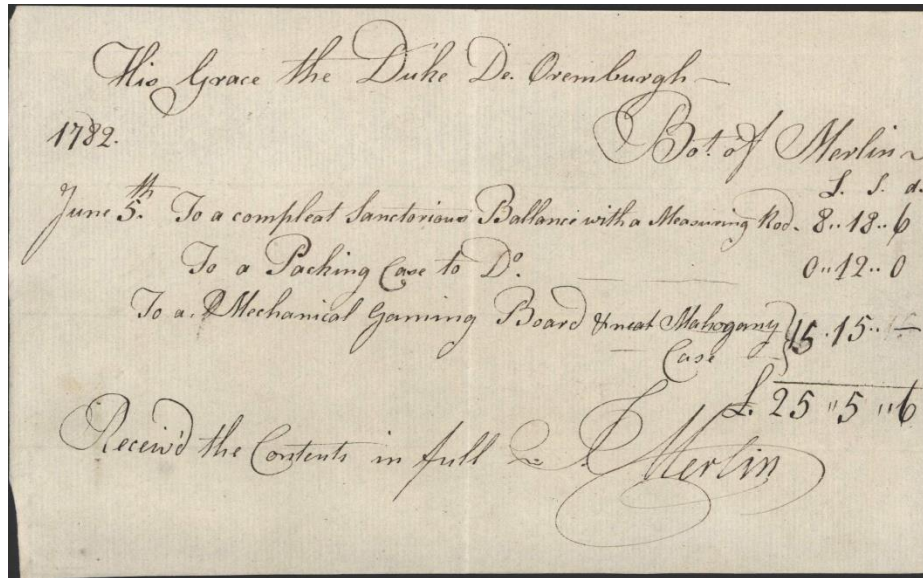 His Grace the Duke De. Oremburgh~
1782.
Bot. of Merlin~
L. S. d.
June 5.th To a compleat Sanctorious Ballance with a Measuring Rod. 8..18..6
To a Packing Case to Do. 0..12..0
To a Mechanical Gaming Board & neat Mahogany 15.15..—
Case
£. 25 " 5 " 6
Receiv'd the Contents in full J Merlin